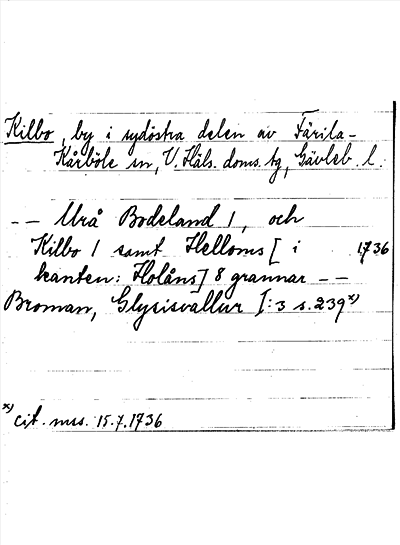 Kilbo, by i sydöstra delen av Färila-
Kårböle sn, V. Häls. doms. tg, Gävleb. l.
-- Urå Bodeland 1, och
Kilbo 1 samt Helloms [ i 1736
kanten: Holåns] 8 grannar --
Broman, Glysisvallur I:3 s. 239 x)
x) cit. mss. 15.7.1736